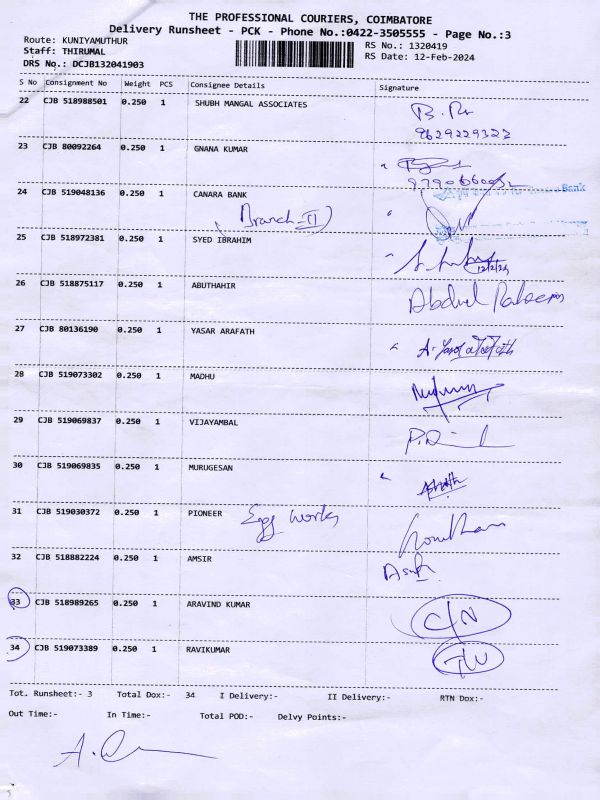 THE PROFESSIONAL COURIERS, COIMBATORE
Delivery Runsheet - PCK - Phone No.:0422-3505555 - Page No.:3
Route: KUNIYAMUTHUR
Staff: THIRUMAL
DRS No.: DCJB132041903
RS No.: 1320419
RS Date: 12-Feb-2024
S No Consignment No Weight PCS Consignee Details Signature
22 CJB 518988501 0.250 1 SHUBH MANGAL ASSOCIATES
9629229323
23 CJB 80092264 0.250 1 GNANA KUMAR
24 CJB 519048136 0.250 1 CANARA BANK
Branch-II
Bank
25 CJB 518972381 0.250 1 SYED IBRAHIM
12/2/24
26 CJB 518875117 0.250 1 ABUTHAHIR
Abdul Raheem
27 CJB 80136190 0.250 1 YASAR ARAFATH
28 CJB 519073302 0.250 1 MADHU
29 CJB 519069837 0.250 1 VIJAYAMBAL
30 CJB 519069835 0.250 1 MURUGESAN
31 CJB 519030372 0.250 1 PIONEER Egg works
32 CJB 518882224 0.250 1 AMSIR
33 CJB 518989265 0.250 1 ARAVIND KUMAR
C/N
34 CJB 519073389 0.250 1 RAVIKUMAR
Tot. Runsheet:- 3 Total Dox:- 34 I Delivery:- II Delivery:- RTN Dox:-
Out Time:- In Time:- Total POD:- Delvy Points:-